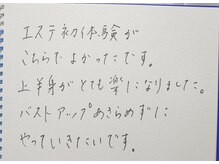 エステ初体験が
こちらでよかったです。
上半身がとても楽になりました。
バストアップあきらめずに
やっていきたいです。